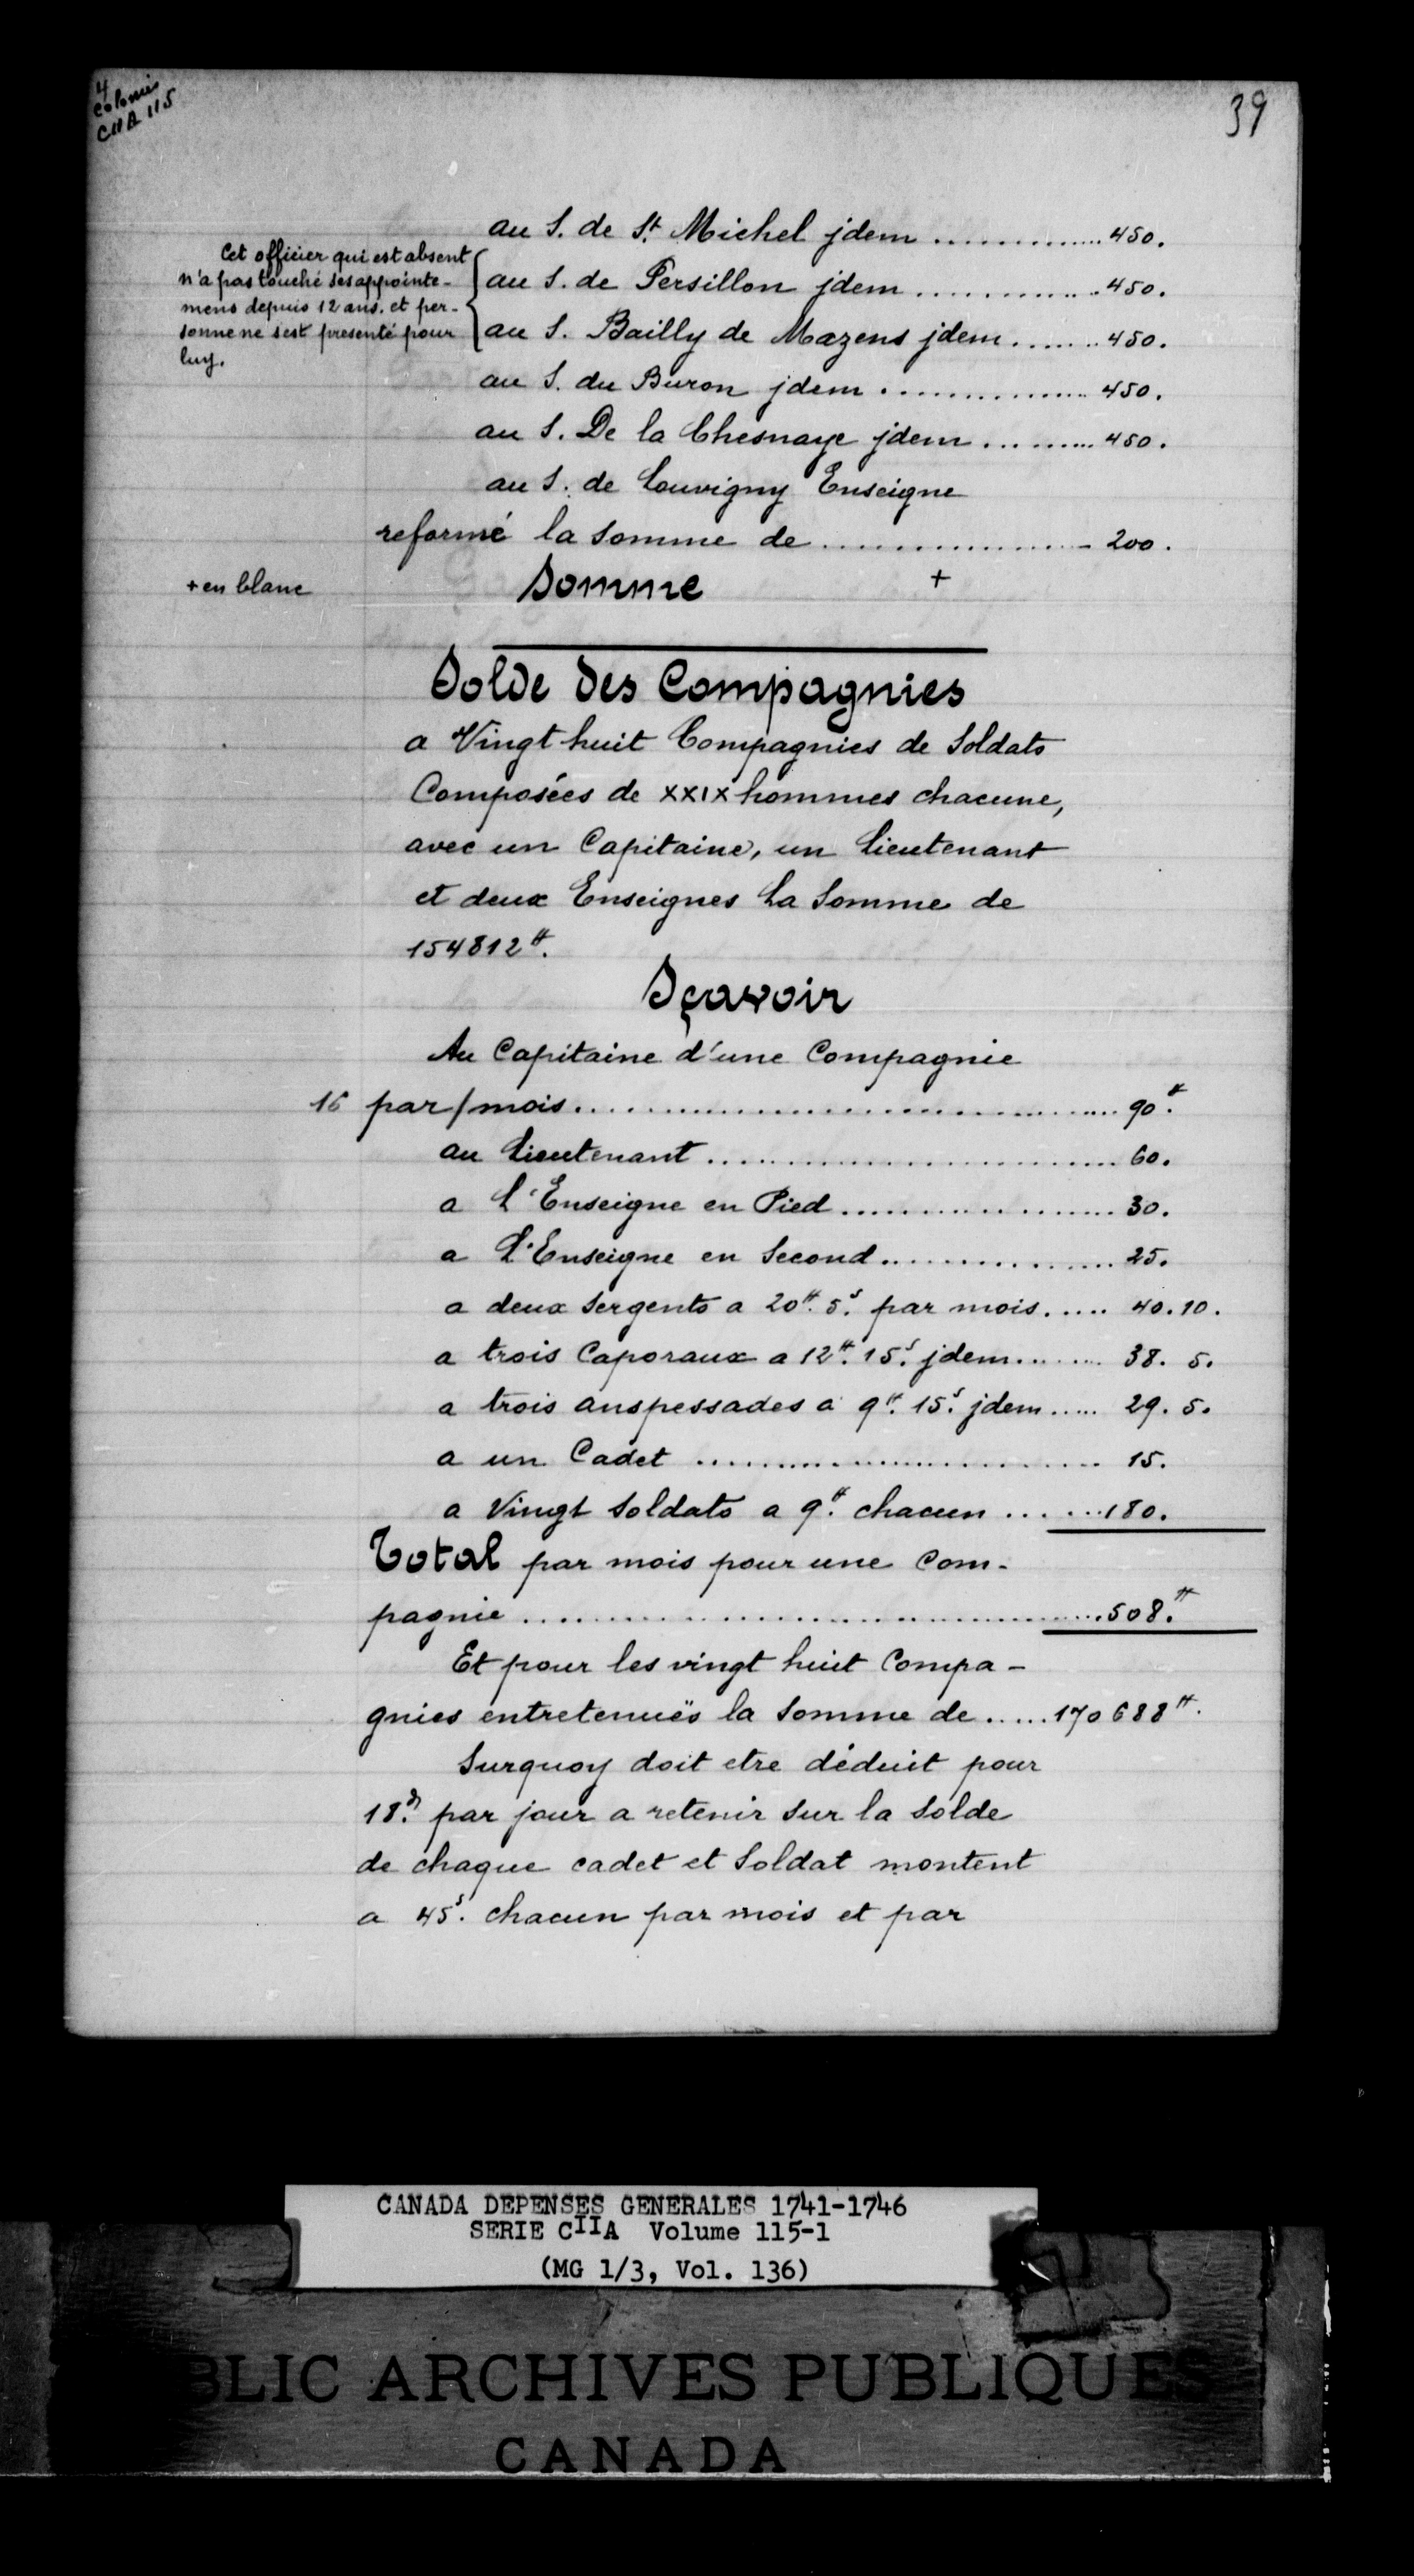 4
Colonies
C11A 115
39
au S. de St. Michel jdem .............. 450.
Cet officier qui est absent
n'a pas touché ses appointe-
mens depuis 12 ans. et per-
sonne ne s'est presenté pour
luy.
au S. de Persillon jdem .............. 450.
au S. Bailly de Mazens jdem ....... 450.
au S. du Buron jdem ................ 450.
au S. De la Chesnaye jdem ......... 450.
au S. de Louvigny Enseigne
reformé la somme de .................. 200.
+ en blanc
Somme +
Solde des Compagnies
a Vingt huit Compagnies de Soldats
Composées de XXIX hommes chacune,
avec un Capitaine, un Lieutenant
et deux Enseignes La Somme de
154812ᵗᵗ.
Sçavoir
Au Capitaine d'une Compagnie
16 par/mois .................................... 90ᵗᵗ.
au Lieutenant ............................. 60.
a L'Enseigne en Pied .................... 30.
a L'Enseigne en Second ................. 25.
a deux Sergents a 20ᵗᵗ. 5ˢ. par mois ..... 40. 10.
a trois Caporaux a 12ᵗᵗ. 15ˢ. jdem ....... 38. 5.
a trois anspessades a 9ᵗᵗ. 15ˢ. jdem ..... 29. 5.
a un Cadet ............................. 15.
a Vingt Soldats a 9ᵗᵗ. chacun ....... 180.
Total par mois pour une Com-
pagnie ......................................... 508.ᵗᵗ
Et pour les vingt huit Compa-
gnies entretenuës la Somme de ..... 170688ᵗᵗ.
Surquoy doit etre déduit pour
18.ᵈ par jour a retenir sur la Solde
de chaque cadet et Soldat montent
a 45ˢ. chacun par mois et par
CANADA DEPENSES GENERALES 1741-1746
SERIE CIIA Volume 115-1
(MG 1/3, Vol. 136)
BLIC ARCHIVES PUBLIQUES
CANADA